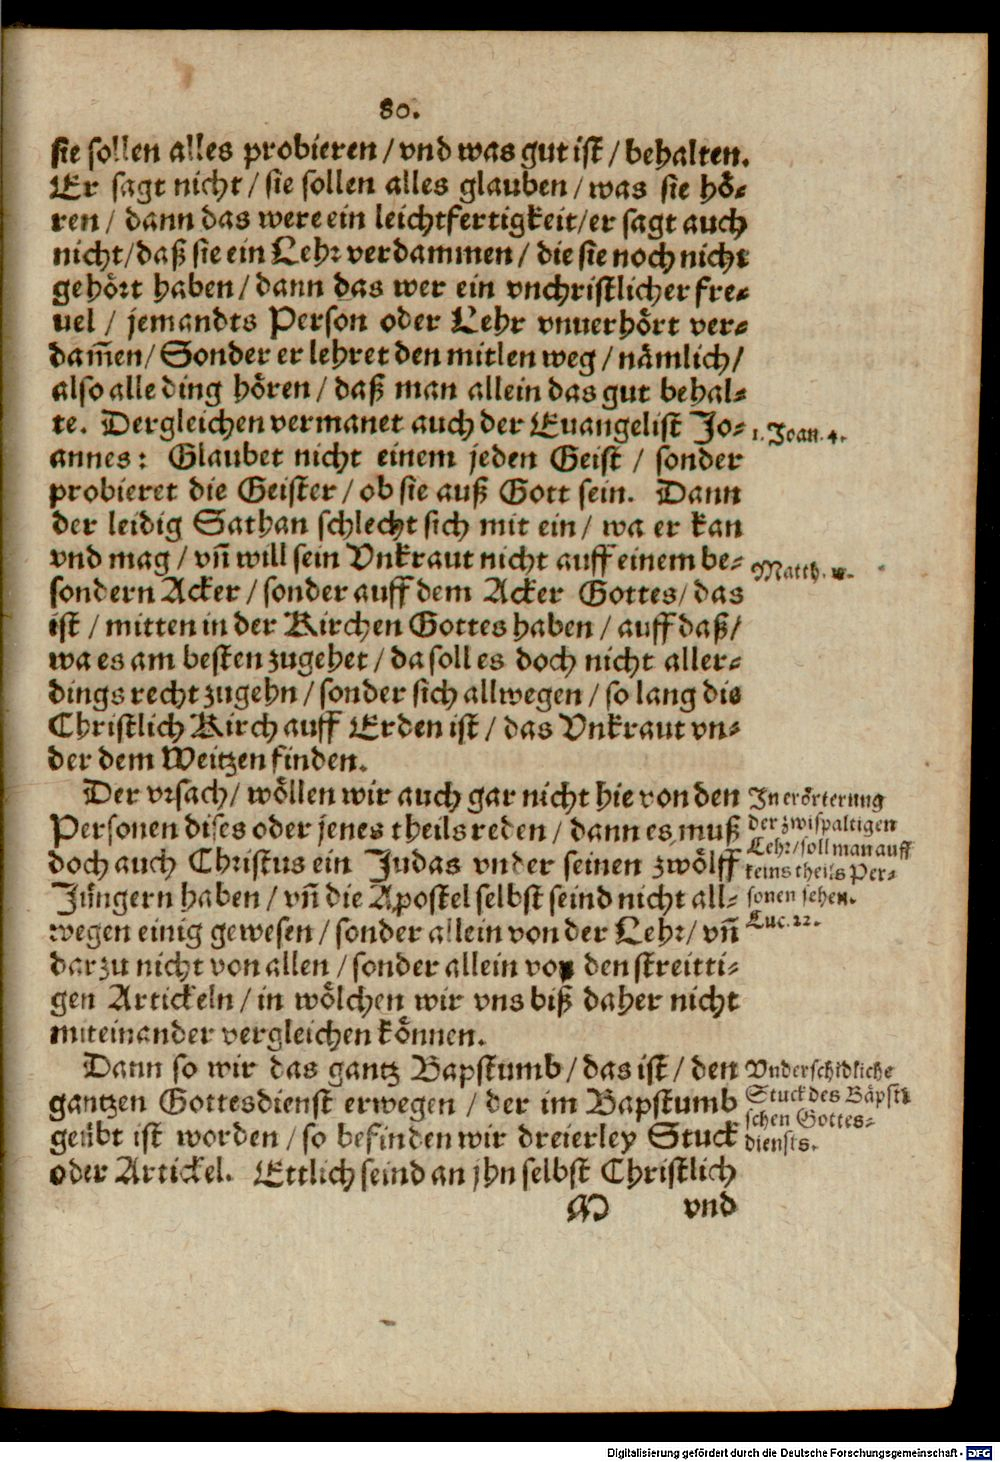 80.
sie sollen alles probieren / vnd was gut ist / behalten.
Er sagt nicht / sie sollen alles glauben / was sie hö-
ren / dann das were ein leichtfertigkeit / er sagt auch
nicht / daß sie ein Lehr verdammen / die sie noch nicht
gehört haben / dann das wer ein vnchristlicher fre-
uel / jemandts Person oder Lehr vnuerhört ver-
dam̄en / Sonder er lehret den mitlen weg / nämlich /
also alle ding hören / daß man allein das gut behal-
te. Dergleichen vermanet auch der Euangelist Jo-
1. Joan. 4.
annes: Glaubet nicht einem jeden Geist / sonder
probieret die Geister / ob sie auß Gott sein. Dann
der leidig Sathan schlecht sich mit ein / wa er kan
vnd mag / vn̄ will sein Vnkraut nicht auff einem be-
Matth.
sondern Acker / sonder auff dem Acker Gottes / das
ist / mitten in der Kirchen Gottes haben / auff daß /
wa es am besten zugehet / da soll es doch nicht aller-
dings recht zugehn / sonder sich allwegen / so lang die
Christlich Kirch auff Erden ist / das Vnkraut vn-
der dem Weitzen finden.
Der vrsach / wöllen wir auch gar nicht hie von den
Personen dises oder jenes theils reden / dann es muß
doch auch Christus ein Judas vnder seinen zwölff
Jüngern haben / vn̄ die Apostel selbst seind nicht all-
wegen einig gewesen / sonder allein von der Lehr / vn̄
darzu nicht von allen / sonder allein von den streitti-
gen Artickeln / in wölchen wir vns biß daher nicht
miteinander vergleichen können.
In erörterung
der zwispaltigen
Lehr / soll man auff
keins theils Per-
sonen sehen.
Luc. 22.
Dann so wir das gantz Bapstumb / das ist / den
gantzen Gottesdienst erwegen / der im Bapstumb
geübt ist worden / so befinden wir dreierley Stuck
oder Artickel. Ettlich seind an jhn selbst Christlich
Vnderschidliche
Stuck des Bäpsti-
schen Gottes-
diensts.
M vnd
Digitalisierung gefördert durch die Deutsche Forschungsgemeinschaft - DFG